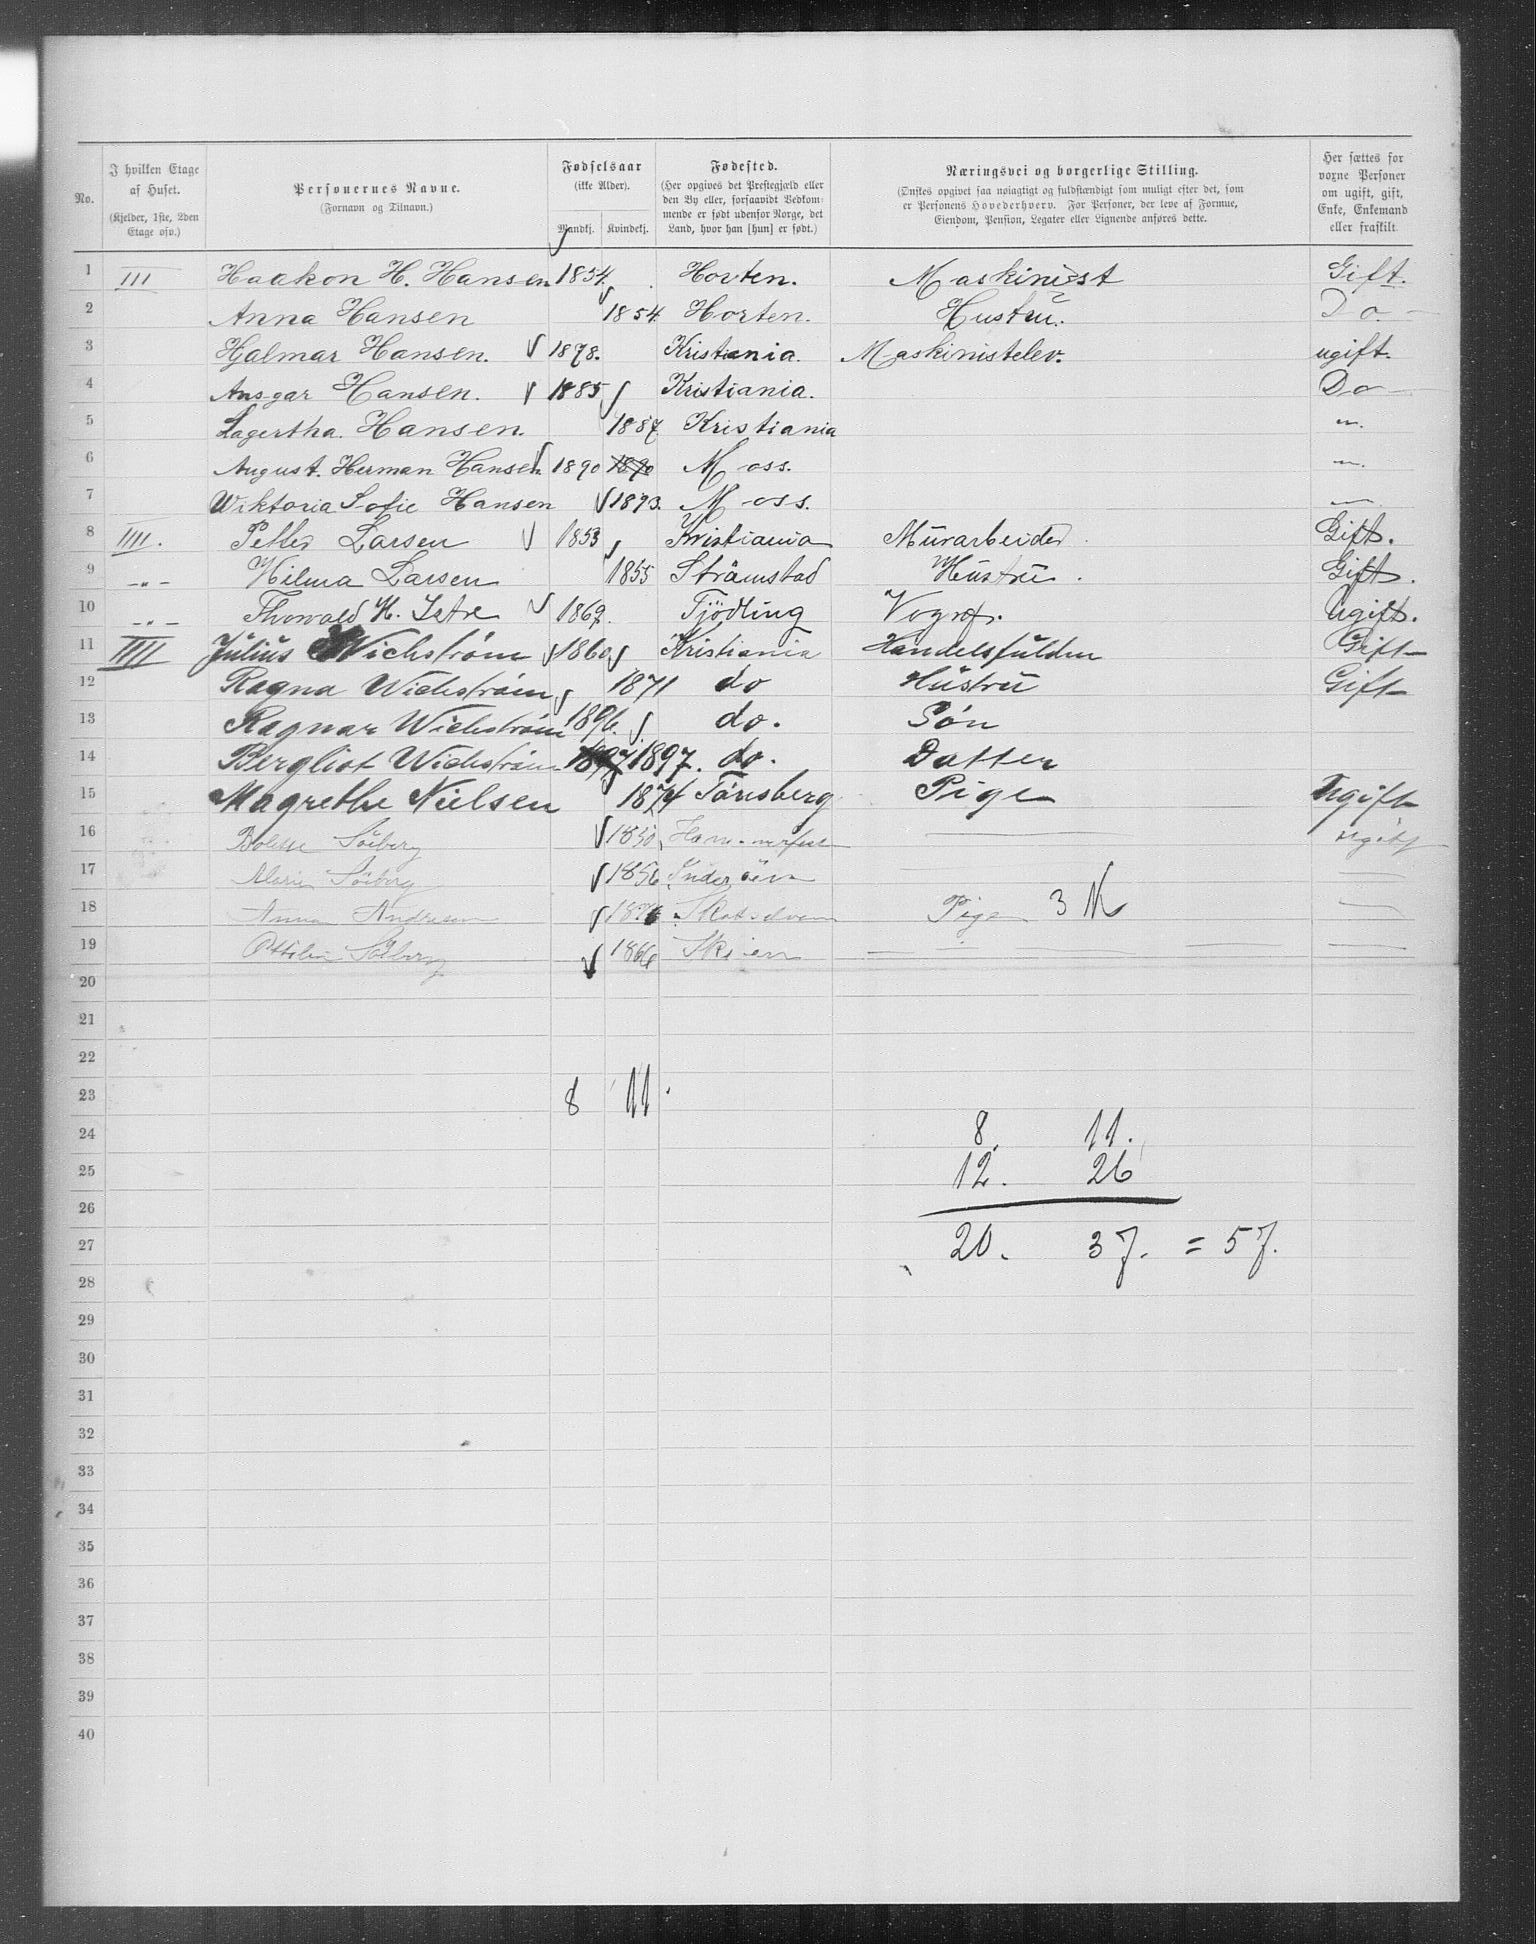 No.
I hvilken Etage af Huset.
(Kjelder, 1ste, 2den Etage osv.)
Personernes Navne.
(Fornavn og Tilnavn.)
Fødselsaar
(ikke Alder).
Mandkj. Kvindekj.
Fødested.
(Her opgives det Præstegjæld eller
den By eller, forsaavidt Vedkom-
mende er født udenfor Norge, det
Land, hvor han [hun] er født.)
Næringsvei og borgerlige Stilling.
(Ønskes opgivet saa nøiagtigt og fuldstændigt som muligt efter det, som
er Personens Hovederhverv. For Personer, der leve af Formue,
Eiendom, Pension, Legater eller Lignende anføres dette.)
Her sættes for
voxne Personer
om ugift, gift,
Enke, Enkemand
eller fraskilt.
1 III Haakon H. Hansen 1854. Horten. Maskinist Gift.
2 Anna Hansen 1854 Horten. Hustru. Do.
3 Hjalmar Hansen. 1878. Kristiania. Maskinistelev. ugift.
4 Ansgar Hansen. 1885 Kristiania. Do
5 Lagertha. Hansen. 1887 Kristiania -"-
6 August. Herman Hansen 1890 1890 Moss. -"-
7 Wiktoria Sofie Hansen 1893. Moss.
8 IIII. Petter Larsen 1853 Kristiania Murarbeider Gift.
9 -"- Hilma Larsen 1855 Strömstad Hustru. Gift.
10 -"- Thorvald H. 1869. Tjödling Vognf. Ugift.
11 IIII Julius Wichstrøm 1860 Kristiania Gift
12 Ragna Wichstrøm 1871 do Hustru Gift
13 Ragnar Wichstrøm 1896. do. Søn
14 Bergliot Wichstrøm 1897 1897. do. Datter
15 Magrethe Nielsen 1874 Tønsberg Pige Ugift
16 Bolette Söiberg 1850. Hammerfest ugift
17 Söiberg 1856 Inderöen
18 Anna Andresen Pige 3 K
19 1866 Skien
20
21
22
23 8 11.
24 8. 11.
25 12. 26
26
27 20. 37. = 57.
28
29
30
31
32
33
34
35
36
37
38
39
40